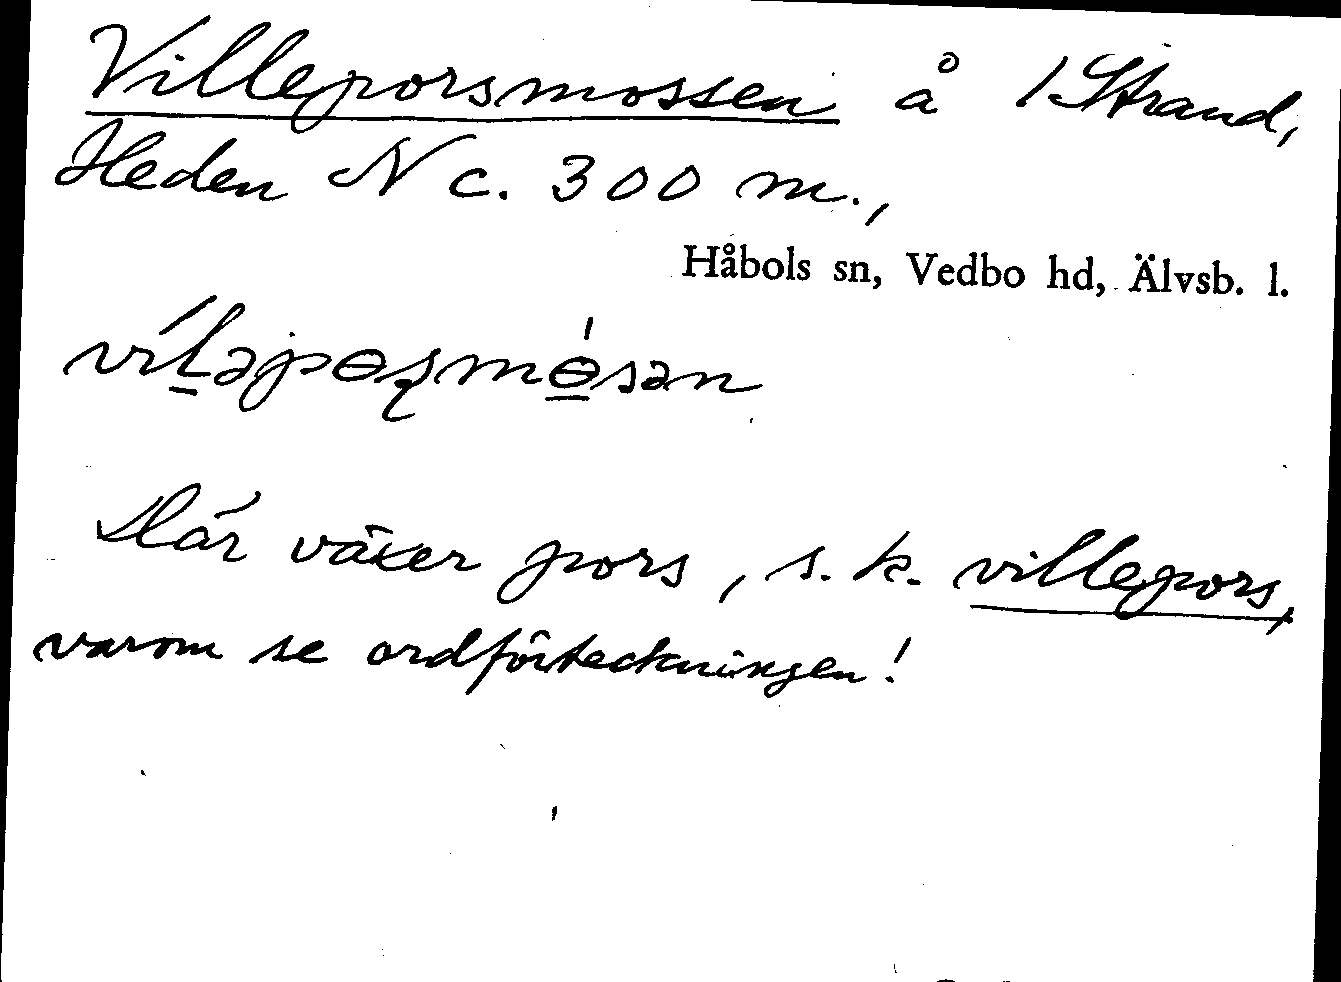 Villeporsmossen å 1 Strand,
Heden N c. 300 m.,
Håbols sn, Vedbo hd, Älvsb. l.
víl̲əpɵʂmɵ̲́sən
Där växer pors, s. k. villepors,
varom se ordförteckningen!